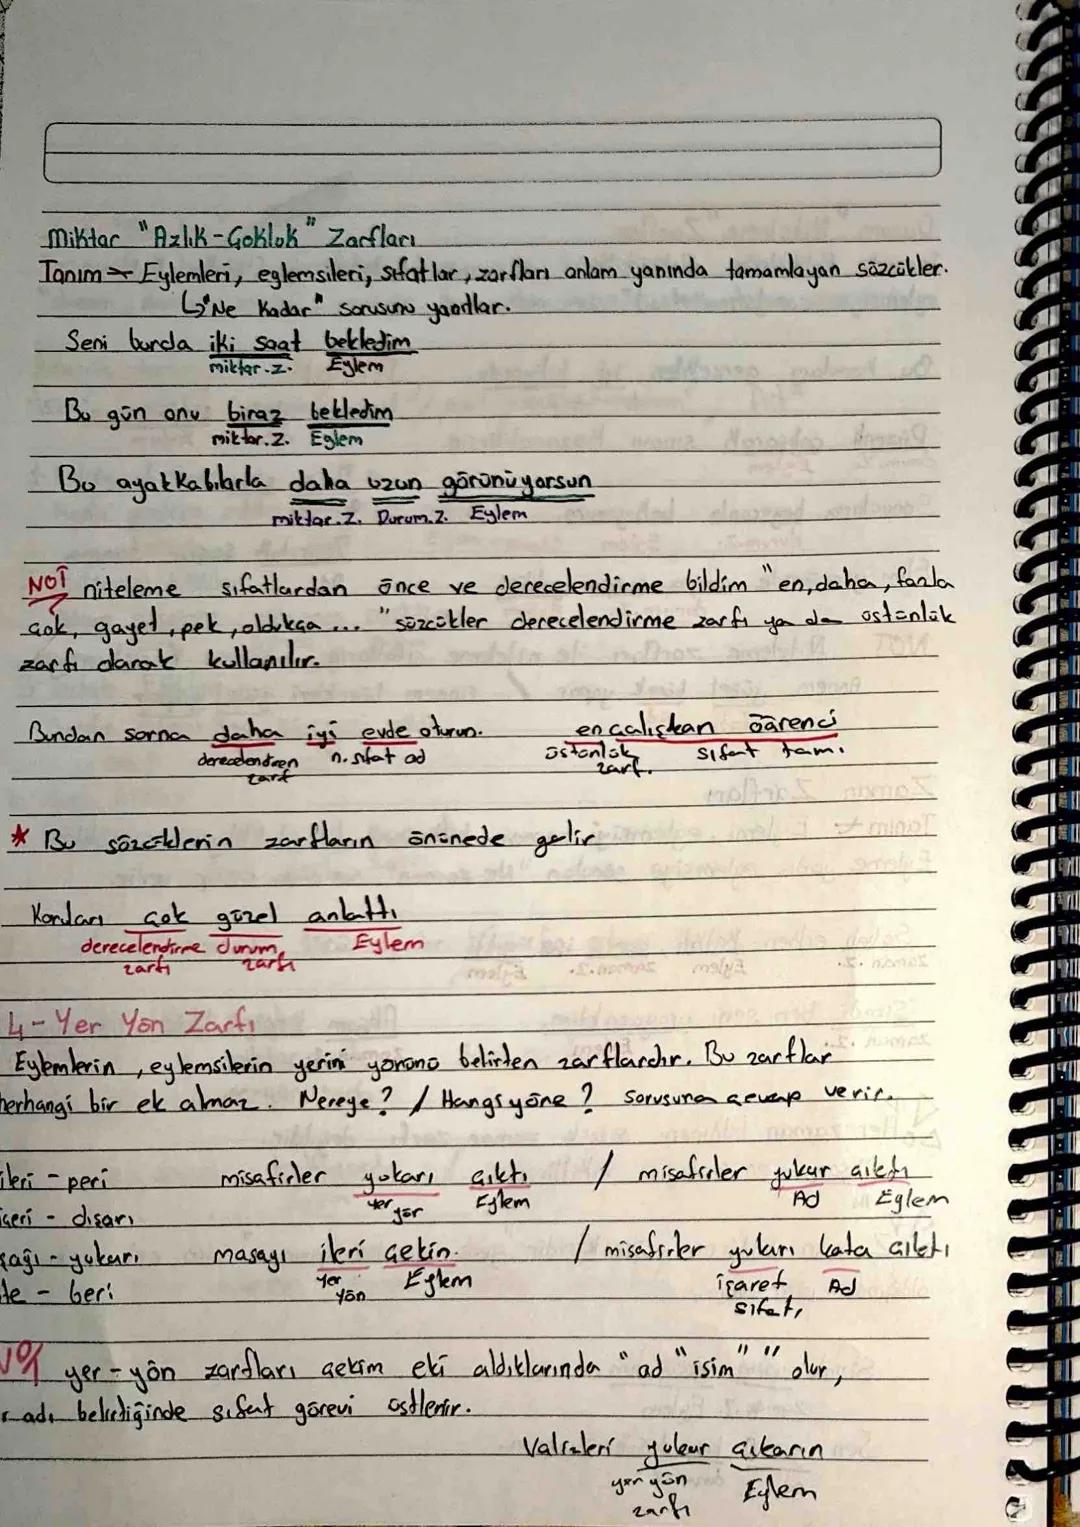 Miktar "Azlık-Çokluk" Zarfları
Tanım → Eylemleri, eylemsileri, sıfatlar, zarfları anlam yanında tamamlayan sözcükler.
↳ "Ne Kadar" sorusunu yanıtlar.
Seni burda iki saat bekledim
miktar.z. Eylem
Bu gün onu biraz bekledim
miktar.z. Eylem
Bu ayakkabılarla daha uzun görünüyorsun
miktar.z. Durum.z. Eylem
NOT niteleme sıfatlardan önce ve derecelendirme bildim "en, daha, fazla
çok, gayet, pek, oldukça ... " sözcükler derecelendirme zarfı ya da üstünlük
zarfı olarak kullanılır.
Bundan sorna daha iyi evde oturun. en çalışkan öğrenci
derecelendiren n. sıfat ad üstünlük sıfat tam.
zarf zarf.
* Bu sözcüklerin zarfların önünede gelir
Konuları çok güzel anlattı
derecelendirme durum Eylem
zarfı zarfı
4- Yer Yön Zarfı
Eylemlerin, eylemsilerin yerini yönünü belirten zarflardır. Bu zarflar
herhangi bir ek almaz. Nereye? / Hangi yöne? sorusuna cevap verir.
ileri - geri misafirler yukarı çıktı / misafirler yukar çıktı
yer yör Eylem Ad Eylem
içeri - dışarı
şağı - yukarı masayı ileri çekin. / misafirler yukarı kata çıktı
yer yön Eylem işaret sıfatı Ad
te - beri
NOT yer-yön zarfları çekim eki aldıklarında "ad "isim" " olur,
r adı belirtiğinde sıfat görevi üstlenir.
Valizleri yukar çıkarın
yer yön Eylem
zarfı